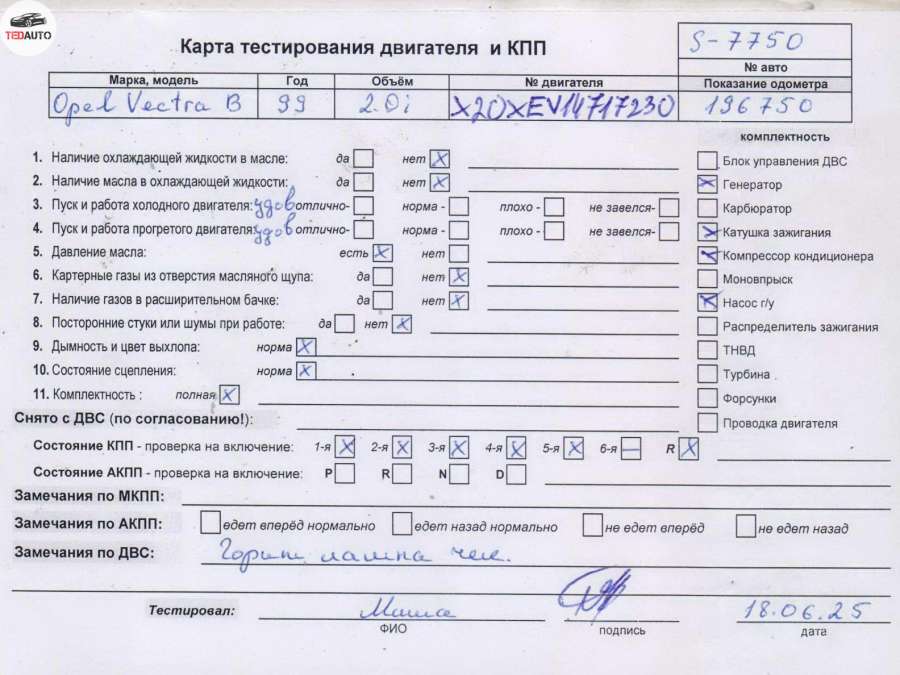 TEDAUTO
Карта тестирования двигателя и КПП
S-7750
№ авто
Марка, модель Год Объём № двигателя Показание одометра
Opel Vectra B 99 2.0i X20XEV14717230 196750
комплектность
1. Наличие охлаждающей жидкости в масле: да нет X
Блок управления ДВС
2. Наличие масла в охлаждающей жидкости: да нет X
X Генератор
3. Пуск и работа холодного двигателя: удов отлично- норма - плохо - не завелся-
Карбюратор
4. Пуск и работа прогретого двигателя: удов отлично- норма - плохо - не завелся-
X Катушка зажигания
5. Давление масла: есть X нет
X Компрессор кондиционера
6. Картерные газы из отверстия масляного щупа: да нет X
Моновпрыск
7. Наличие газов в расширительном бачке: да нет X
X Насос г/у
8. Посторонние стуки или шумы при работе: да нет X
Распределитель зажигания
9. Дымность и цвет выхлопа: норма X
ТНВД
10. Состояние сцепления: норма X
Турбина
11. Комплектность : полная X
Форсунки
Снято с ДВС (по согласованию!):
Проводка двигателя
Состояние КПП - проверка на включение: 1-я X 2-я X 3-я X 4-я X 5-я X 6-я — R X
Состояние АКПП - проверка на включение: P R N D
Замечания по МКПП:
Замечания по АКПП: едет вперёд нормально едет назад нормально не едет вперёд не едет назад
Замечания по ДВС: Горит лампа чек.
Тестировал: Миша 18.06.25
ФИО подпись дата